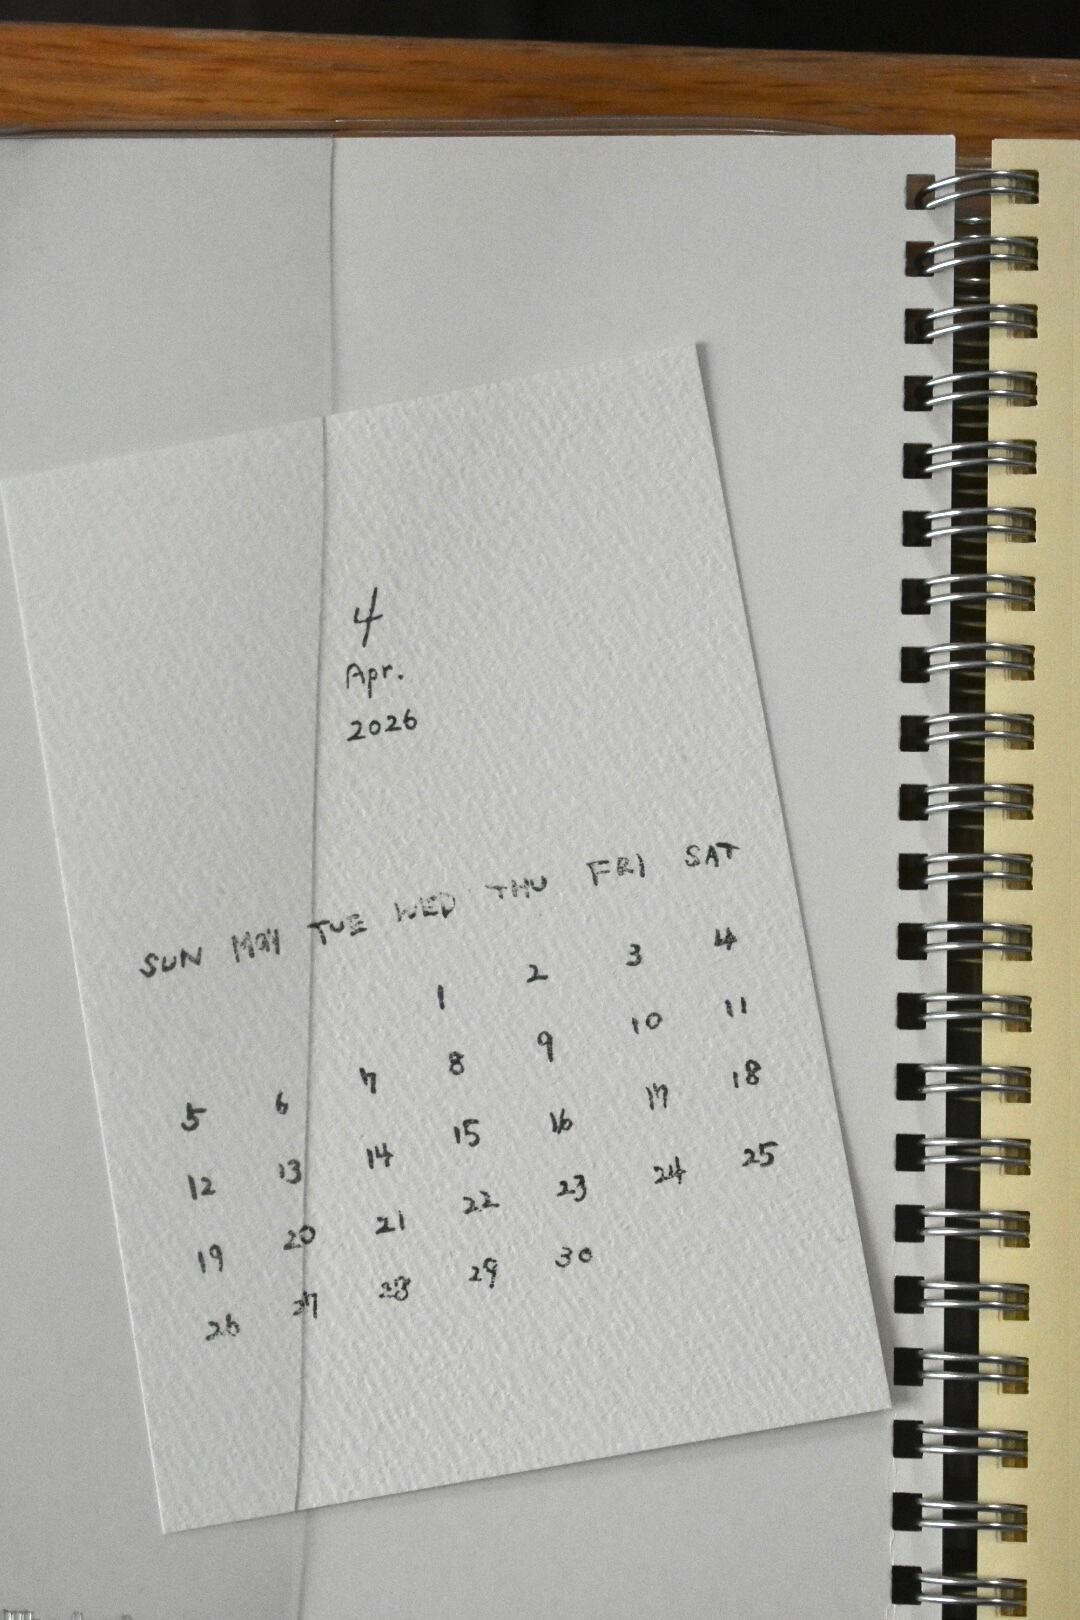 4
Apr.
2026
SUN MON TUE WED THU FRI SAT
1 2 3 4
5 6 7 8 9 10 11
12 13 14 15 16 17 18
19 20 21 22 23 24 25
26 27 28 29 30